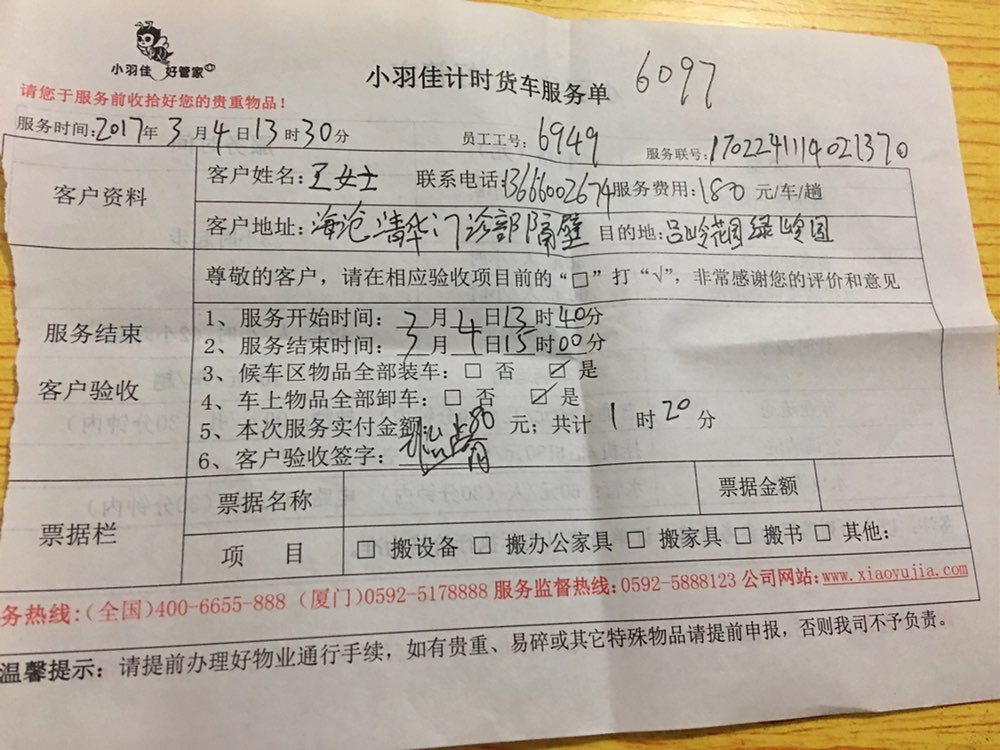 小羽佳 好管家
小羽佳计时货车服务单 6097
请您于服务前收拾好您的贵重物品！
服务时间:2017年3月4日13时30分 员工工号:6949 服务联号:1702241114021370
客户资料
客户姓名:王女士 联系电话:13666002674服务费用:180元/车/趟
客户地址:海沧清华门诊部隔壁 目的地:吕岭花园绿岭园
尊敬的客户，请在相应验收项目前的“□”打“√”，非常感谢您的评价和意见
服务结束
客户验收
1、服务开始时间: 3月4日13时40分
2、服务结束时间: 3月4日15时00分
3、候车区物品全部装车:□ 否 ☑ 是
4、车上物品全部卸车:□ 否 ☑ 是
5、本次服务实付金额 元；共计 1 时 20 分
6、客户验收签字:
票据栏
票据名称 票据金额
项 目 □ 搬设备 □ 搬办公家具 □ 搬家具 □ 搬书 □ 其他:
务热线:(全国)400-6655-888 (厦门)0592-5178888 服务监督热线:0592-5888123 公司网站:www.xiaoyujia.com
温馨提示: 请提前办理好物业通行手续，如有贵重、易碎或其它特殊物品请提前申报，否则我司不予负责。